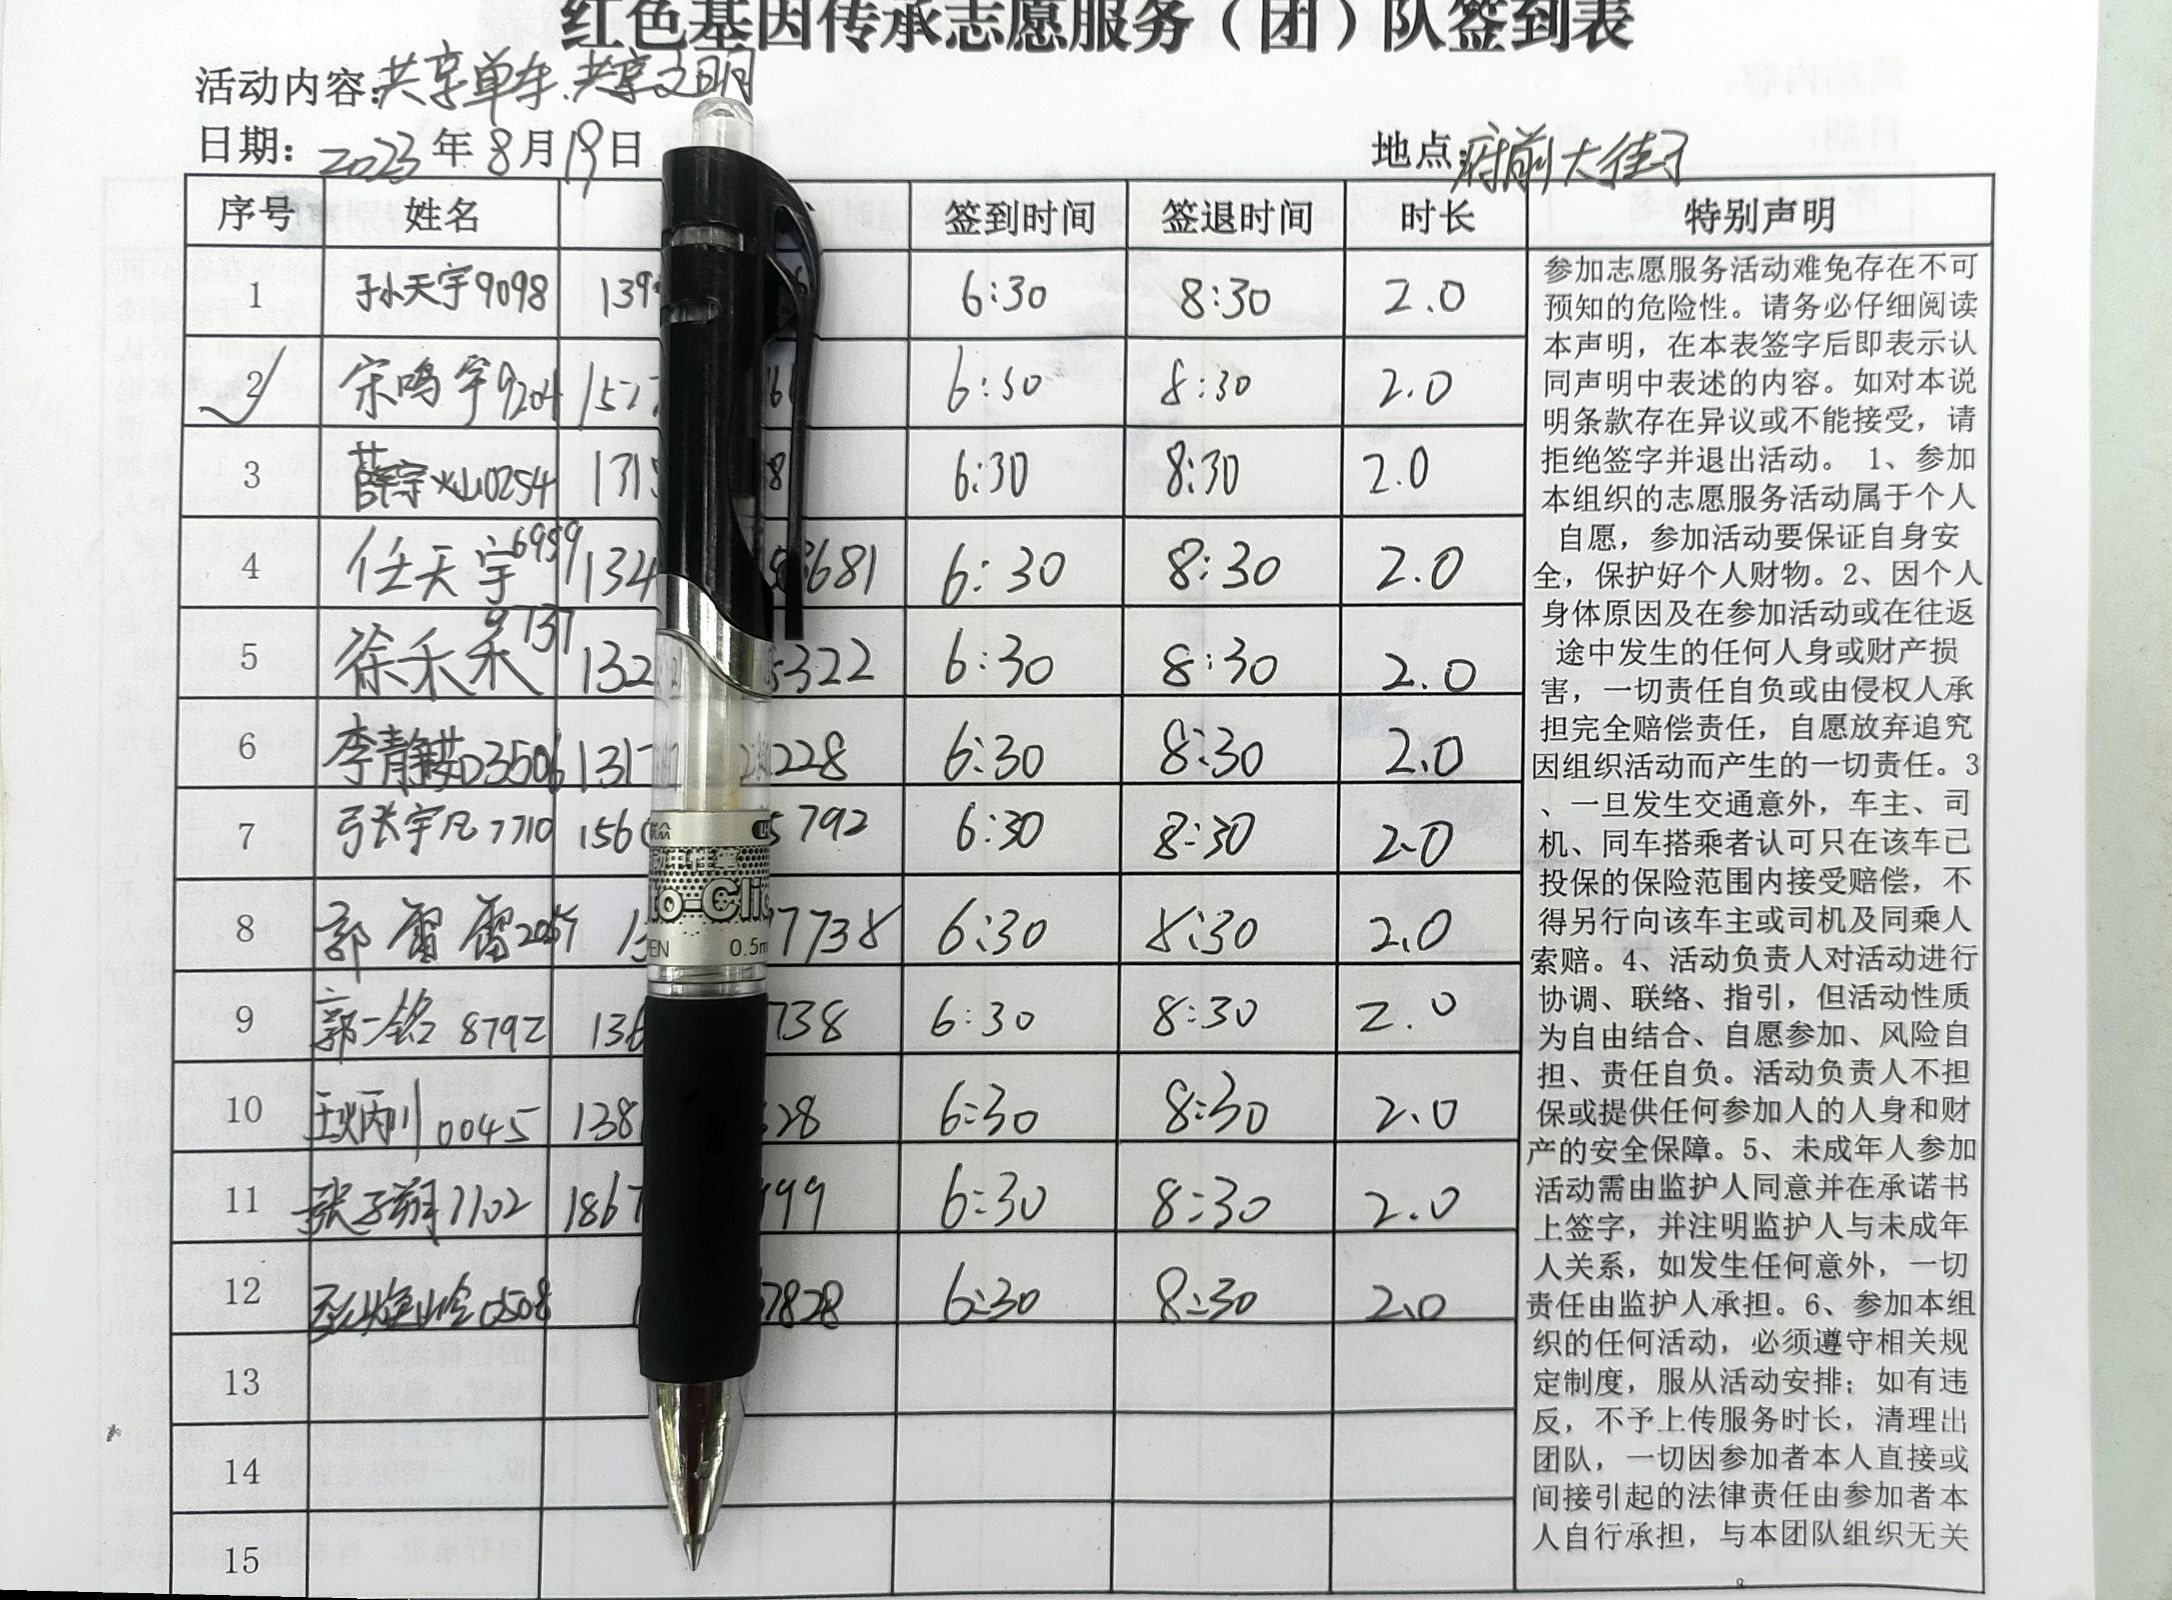 红色基因传承志愿服务（团）队签到表
活动内容:共享单车.共享文明
日期: 2023年8月19日
地点:府前大街
序号 姓名 签到时间 签退时间 时长 特别声明
1 孙天宇9098 139 6:30 8:30 2.0
2 宋鸣宇9204 152 6:30 8:30 2.0
3 薛宗 0254 131 8 6:30 8:30 2.0
4 任天宇6959 134 681 6:30 8:30 2.0
5 徐禾禾9737 132 5322 6:30 8:30 2.0
6 李静 3506 131 228 6:30 8:30 2.0
7 张宇凡7710 156 5792 6:30 8:30 2.0
8 郭雷雷 13 7738 6:30 8:30 2.0
9 郭一铭8792 136 738 6:30 8:30 2.0
10 0045 138 28 6:30 8:30 2.0
11 张子朔1102 1867 999 6:30 8:30 2.0
12 0508 1 7828 6:30 8:30 2.0
13
14
15
参加志愿服务活动难免存在不可
预知的危险性。请务必仔细阅读
本声明，在本表签字后即表示认
同声明中表述的内容。如对本说
明条款存在异议或不能接受，请
拒绝签字并退出活动。 1、参加
本组织的志愿服务活动属于个人
自愿，参加活动要保证自身安
全，保护好个人财物。2、因个人
身体原因及在参加活动或在往返
途中发生的任何人身或财产损
害，一切责任自负或由侵权人承
担完全赔偿责任，自愿放弃追究
因组织活动而产生的一切责任。3
、一旦发生交通意外，车主、司
机、同车搭乘者认可只在该车已
投保的保险范围内接受赔偿，不
得另行向该车主或司机及同乘人
索赔。4、活动负责人对活动进行
协调、联络、指引，但活动性质
为自由结合、自愿参加、风险自
担、责任自负。活动负责人不担
保或提供任何参加人的人身和财
产的安全保障。5、未成年人参加
活动需由监护人同意并在承诺书
上签字，并注明监护人与未成年
人关系，如发生任何意外，一切
责任由监护人承担。6、参加本组
织的任何活动，必须遵守相关规
定制度，服从活动安排；如有违
反，不予上传服务时长，清理出
团队，一切因参加者本人直接或
间接引起的法律责任由参加者本
人自行承担，与本团队组织无关
to-Clic
PEN 0.5m